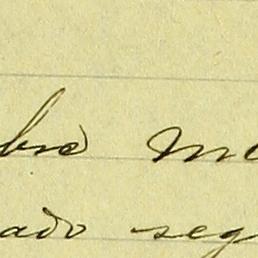 bre m
ado seg